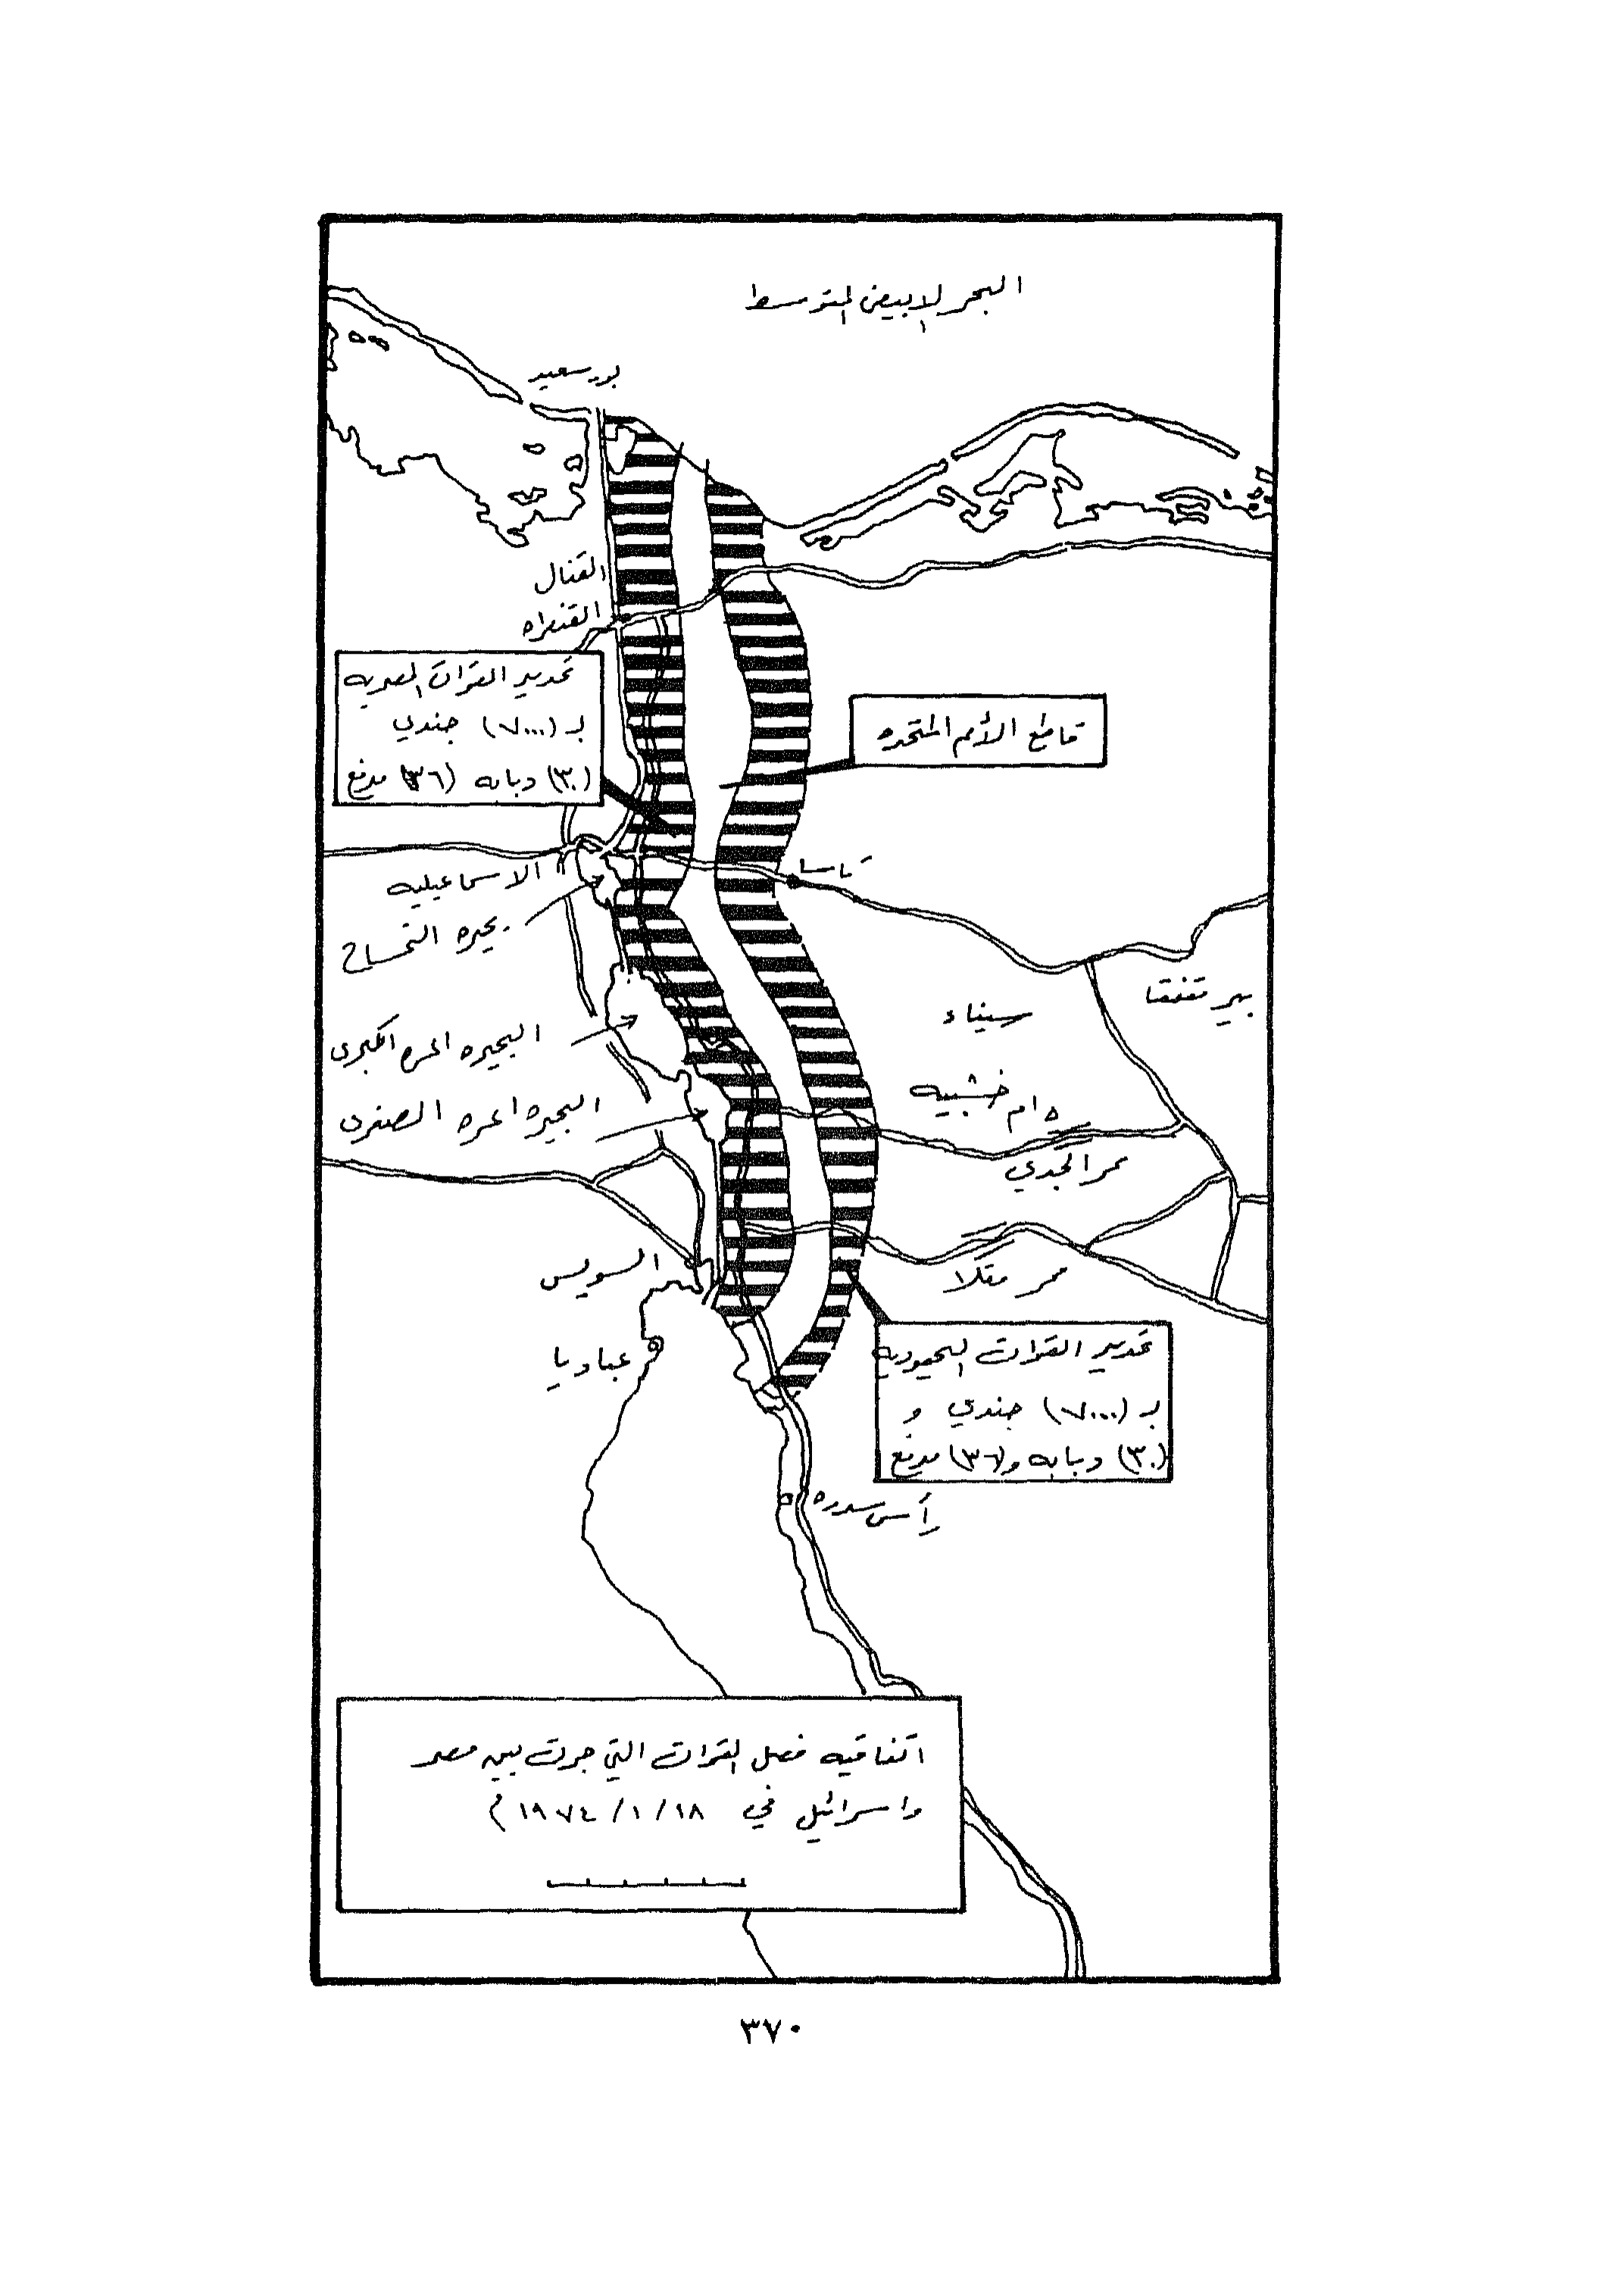 البحر الابيض المتوسط
بور سعيد
القنال
القنطره
تحديد القوات المصريه
بـ (٧٠٠٠) جندي
(٣٠) دبابه (٣٦) مدفع
قاطع الأمم المتحده
الاسماعيليه
تاسا
بحيره التمساح
بير تمفقا
سيناء
البحيره المره الكبرى
ام خشبيه
البحيره المره الصغرى
ممر الجدي
السويس
ممر متلا
عباديا
تحديد القوات اليهوديه
بـ (٧٠٠٠) جندي و
(٣٠) دبابه و(٣٦) مدفع
رأس سدره
اتفاقيه فصل القوات التي جرت بين مصر
واسرائيل في ١٨ / ١ / ١٩٧٤ م
٣٧٠